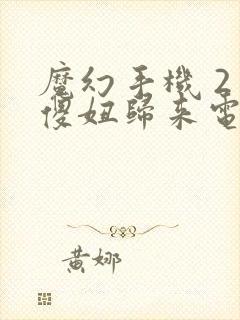 魔幻手機2
傻妞歸來電
黃娜